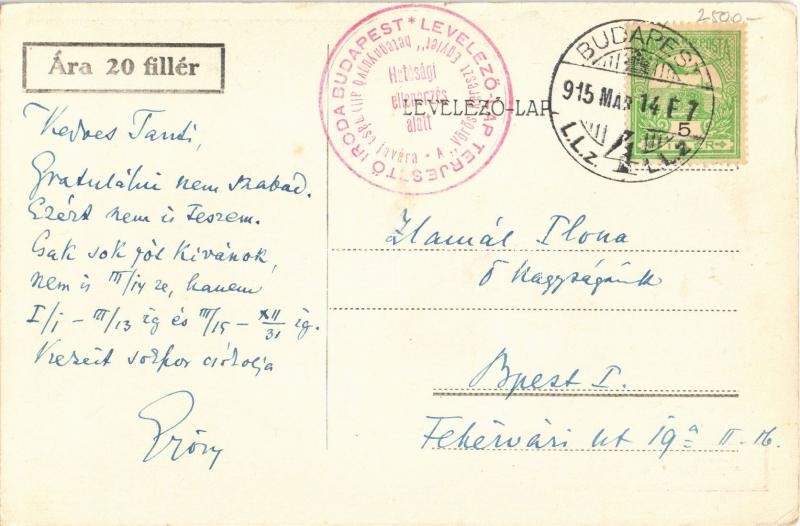 2500.-
Ára 20 fillér
LEVELEZŐ-LAP TERJESZTŐ IRODA BUDAPEST *
Hatósági
ellenőrzés
alatt
javára * A „Vörös Kereszt Egylet"
LEVELEZŐ-LAP
BUDAPEST
915 MAR 14 F 7
I.I.z. 4 I.I.z
POSTA
5
Kedves Tanti,
Gratulálni nem szabad.
Ezért nem is teszem.
Csak sok jót kívánok,
nem is III/14 re, hanem
I/1 – III/13 ig és III/15 – XII/31 ig.
Kezeit sokszor csókolja
Zlamál Ilona
Ő Nagyságának
Bpest I.
Fehérvári út 19a II-16.